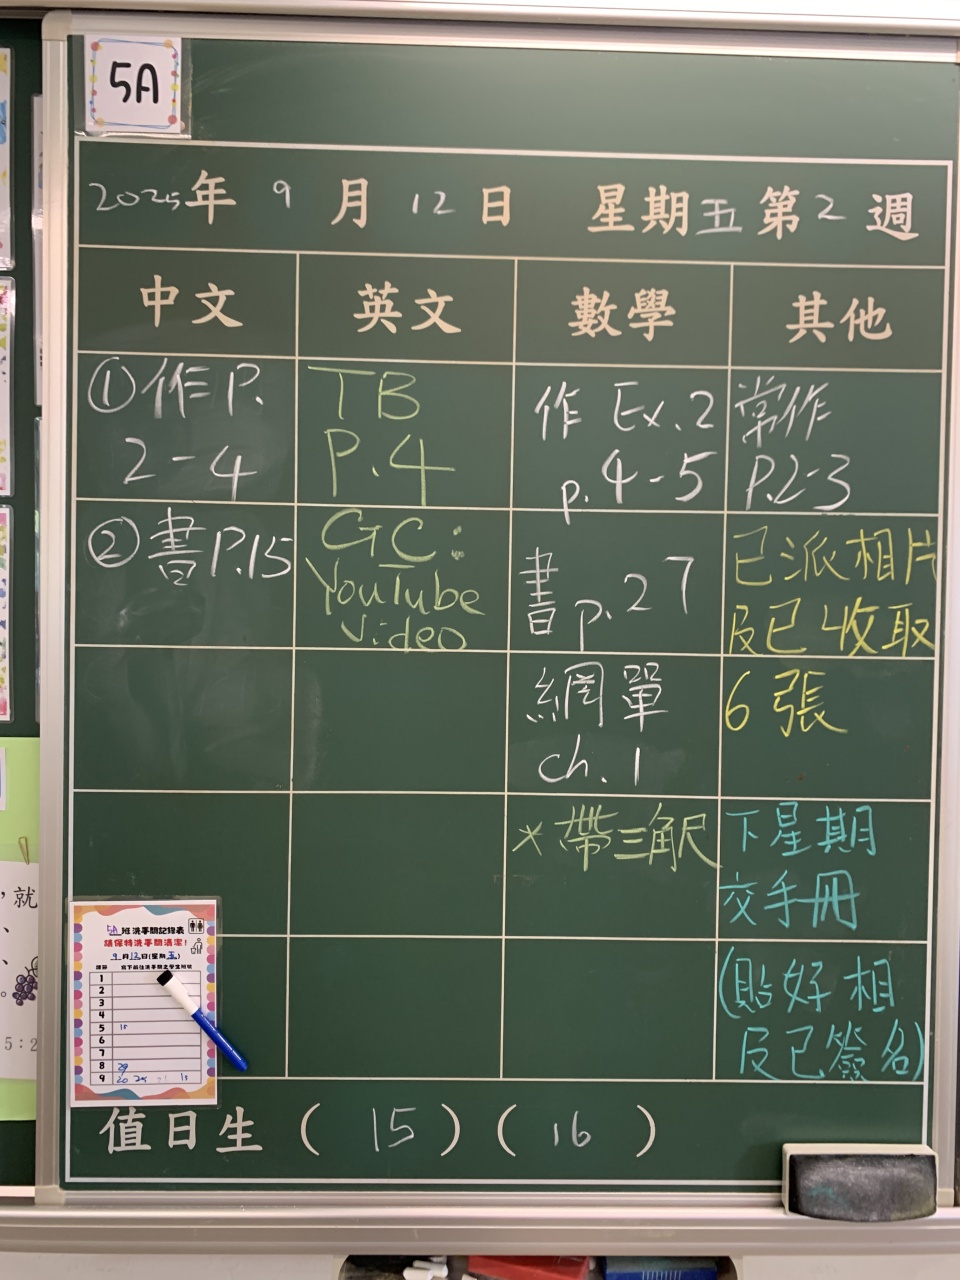 5A
2025年 9 月 12 日 星期五 第 2 週
中文 英文 數學 其他
①作P.
2-4
②書P.15
TB
P.4
GC:
YouTube
Video
作 Ex.2
p.4-5
書 p.27
網單
ch.1
*帶三角尺
常作
P.2-3
已派相片
及已收取
6張
下星期
交手冊
(貼好相
及已簽名)
5A班洗手間記錄表
請保持洗手間清潔!
9月12日(星期五)
課節 寫下前往洗手間之學生班號
1
2
3
4
5 15
6
7
8 29
9 20 25 15
值日生 ( 15 ) ( 16 )
，就
、
、
。
5:2